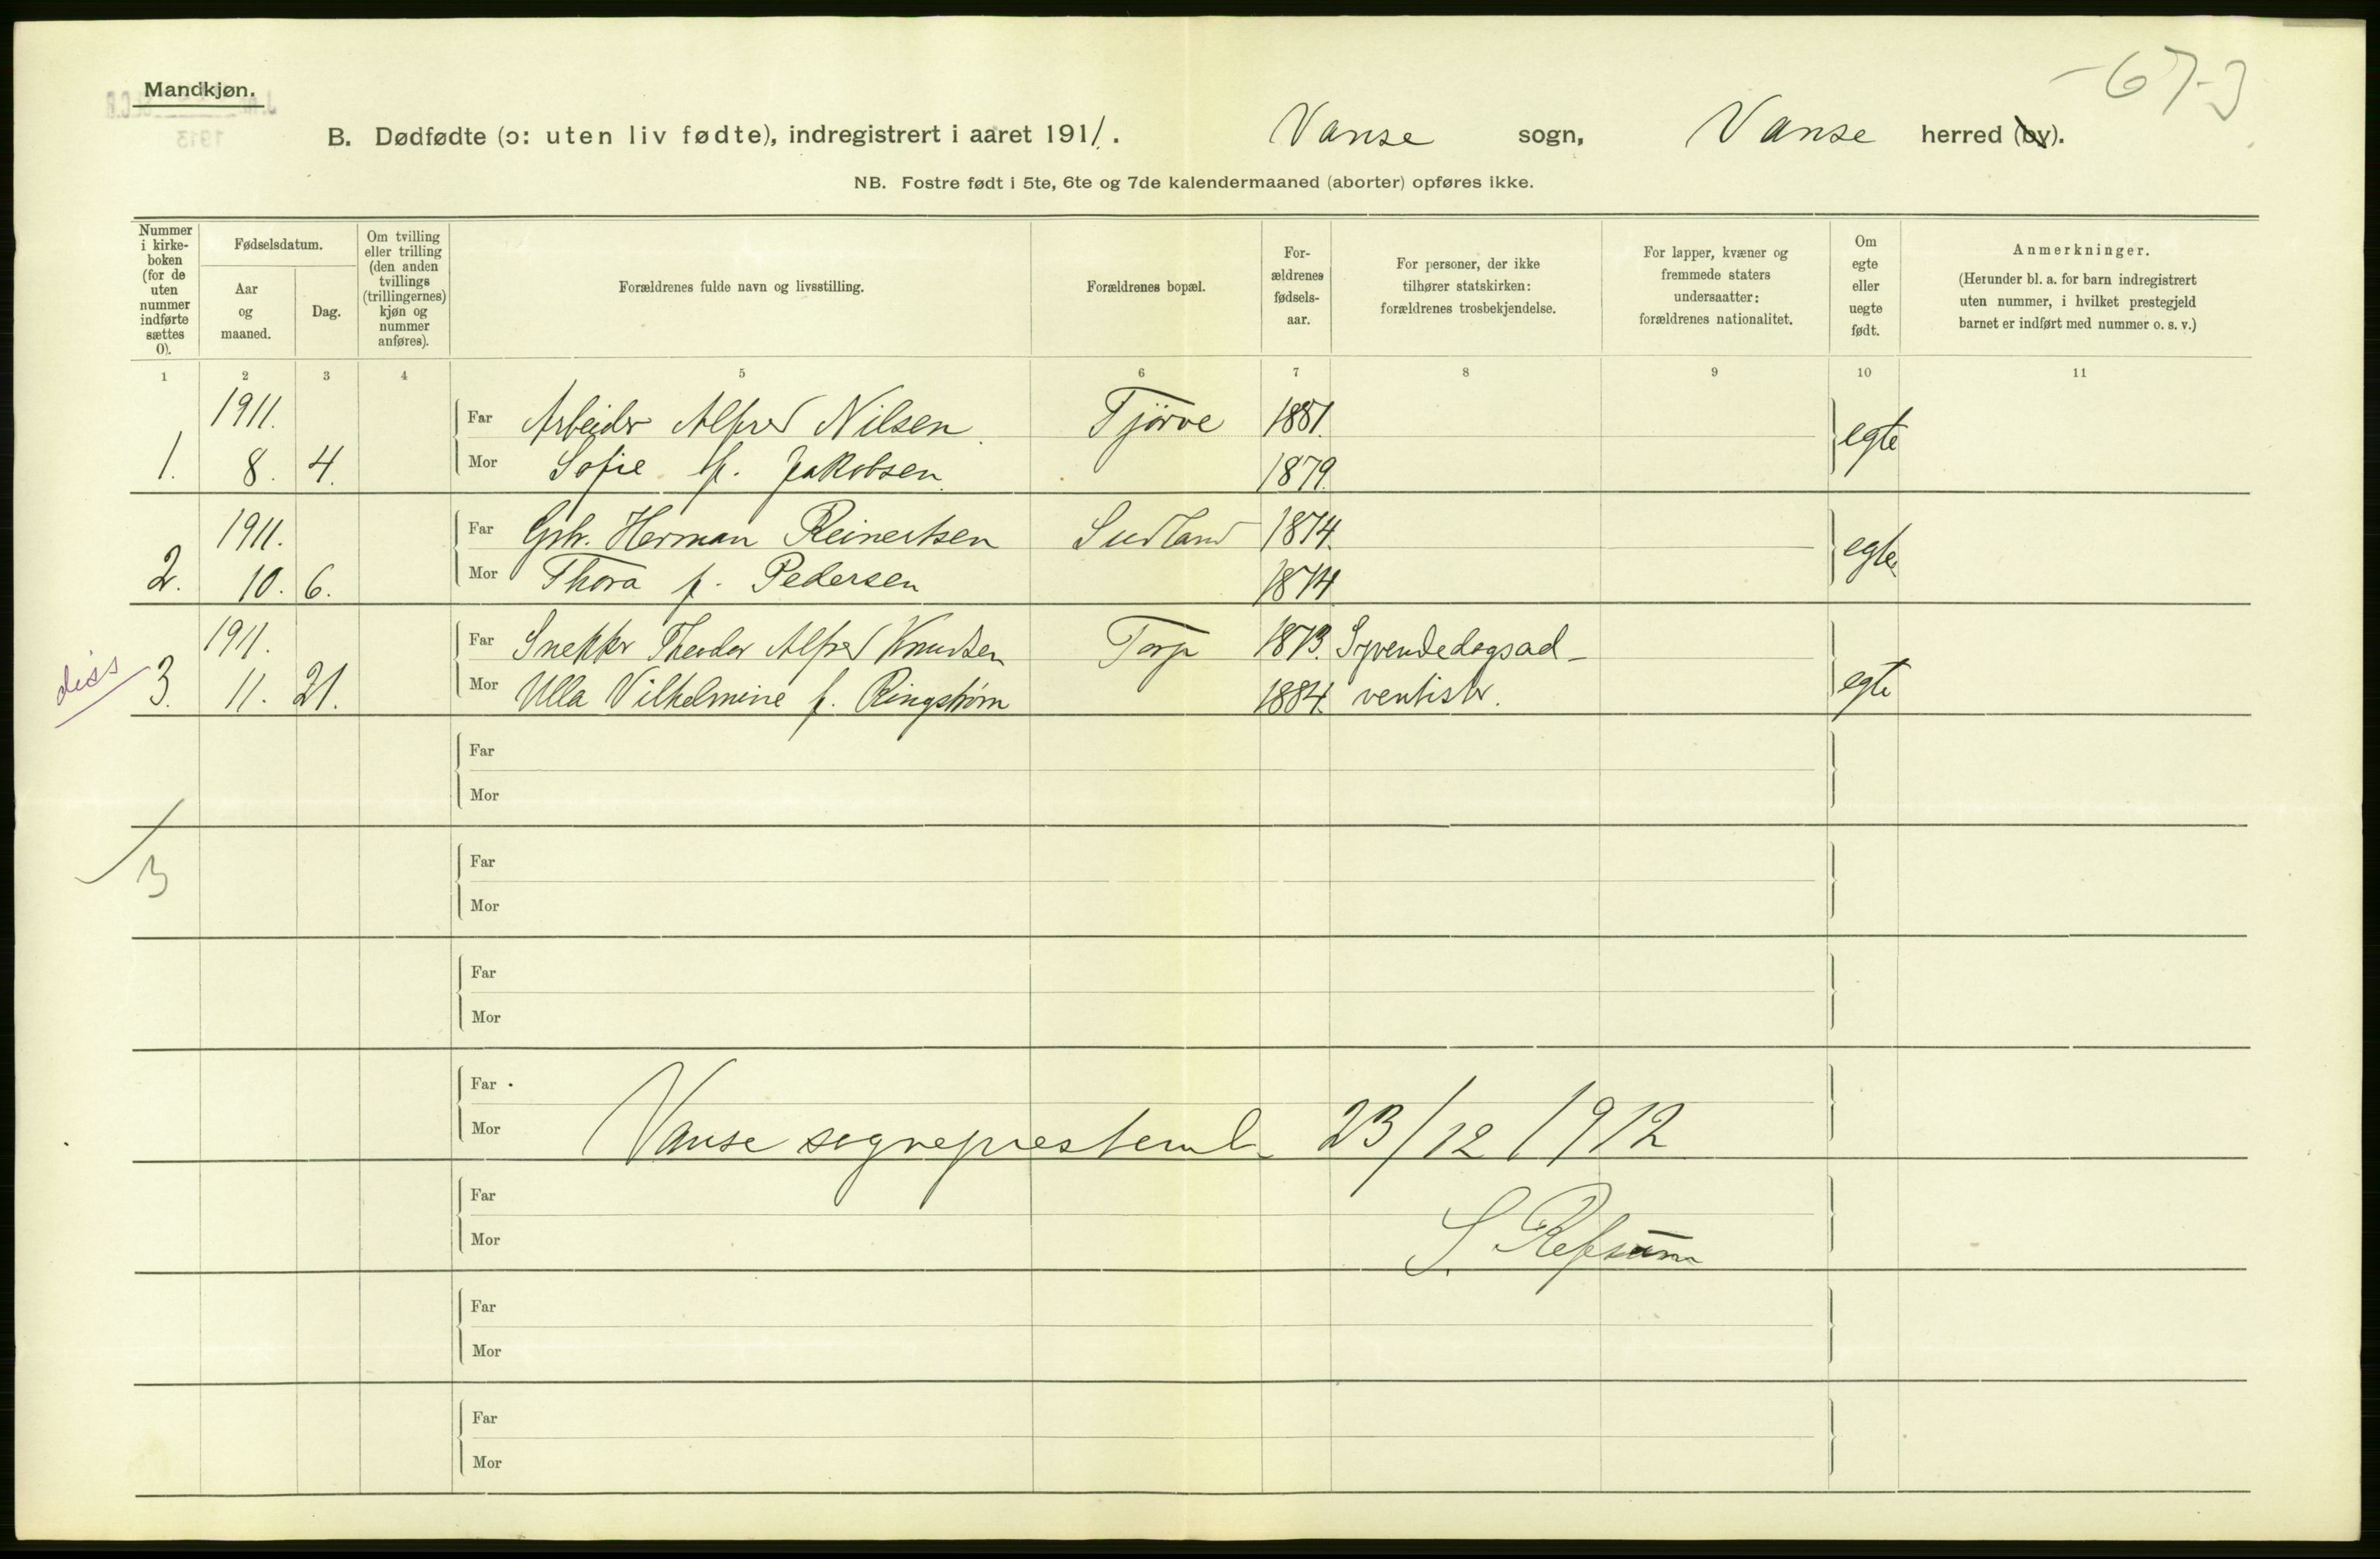 Mandkjøn.
-67-3
B. Dødfødte (ɔ: uten liv fødte), indregistrert i aaret 1911. Vanse sogn, Vanse herred (by).
NB. Fostre født i 5te, 6te og 7de kalendermaaned (aborter) opføres ikke.
Nummer
i kirke-
boken
(for de
uten
nummer
indførte
sættes
0).
Fødselsdatum.
Aar
og
maaned.
Dag.
Om tvilling
eller trilling
(den anden
tvillings
(trillingernes)
kjøn og
nummer
anføres).
Forældrenes fulde navn og livsstilling.
Forældrenes bopæl.
For-
ældrenes
fødsels-
aar.
For personer, der ikke
tilhører statskirken:
forældrenes trosbekjendelse.
For lapper, kvæner og
fremmede staters
undersaatter:
forældrenes nationalitet.
Om
egte
eller
uegte
født.
Anmerkninger.
(Herunder bl. a. for barn indregistrert
uten nummer, i hvilket prestegjeld
barnet er indført med nummer o. s. v.)
1 2 3 4 5 6 7 8 9 10 11
1911. Far Arbeider Alfred Nilsen Tjörve 1881. egte
1. 8. 4. Mor Sofie f. Jakobsen 1879.
1911. Far Gbr. Herman Reinertsen Sudland 1874. egte
2. 10. 6. Mor Thora f. Pedersen 1874
1911. Far Snekker Theodor Alfred Knudsen Torp 1873. Syvendedagsad-
diss 3. 11. 21. Mor Ulla Vilhelmine f. Ringstrøm 1884. ventister. egte
Far
Mor
3
Far
Mor
Far
Mor
Far
Mor
Vanse sogneprestemb. 23/12 1912
Far
Mor
S. Refsum
Far
Mor
Far
Mor